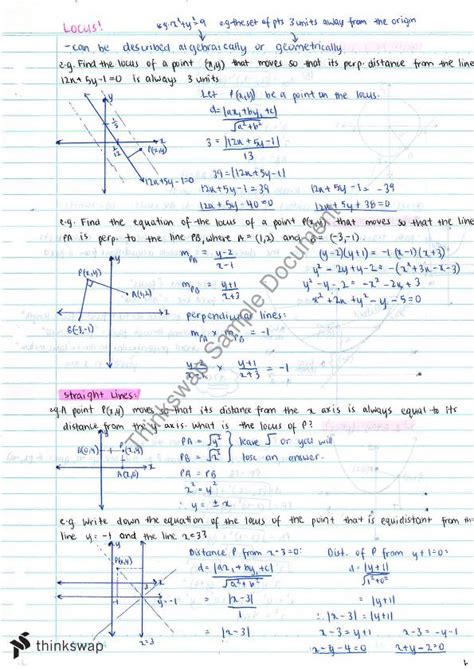 LOCUS!
e.g. x²+y²=9 e.g. the set of pts 3 units away from the origin
- can be described algebraically or geometrically
e.g. Find the locus of a point (x,y) that moves so that its perp. distance from the line
12x+5y-1=0 is always 3 units
Let P(x,y) be a point on the locus.
d = |ax₁+by₁+c|
√a²+b²
3 = |12x+5y-1|
13
39 = |12x+5y-1|
12x+5y-1 = 39 12x+5y-1 = -39
12x+5y-40=0 12x+5y+38=0
y
1/5
1/12
x
P(x,y)
12x+5y-1=0
e.g. Find the equation of the locus of a point P(x,y) that moves so that the line
PA is perp. to the line PB, where A=(1,2) and B=(-3,-1)
y
P(x,y)
A(1,2)
B(-3,-1)
x
m PA = y-2
x-1
m PB = y+1
x+3
perpendicular lines:
m PA × m PB = -1
y-2 × y+1 = -1
x-1 x+3
(y-2)(y+1) = -1(x-1)(x+3)
y²-2y+y-2 = -(x²+3x-x-3)
y²-y-2 = -x²-2x+3
x²+2x+y²-y-5=0
Straight Lines:
e.g. A point P(x,y) moves so that its distance from the x axis is always equal to its
distance from the y axis. what is the locus of P?
y
B(0,y)
P(x,y)
A(x,0)
x
PA = √y²
PB = √x²
leave √ or you will
lose an answer.
PA = PB
x² = y²
∴ y = ± x
e.g. Write down the equation of the locus of the point that is equidistant from the
line y=-1 and the line x=3?
y
P(x,y)
3
x
-1
y=-1
x=3
Distance P from x-3=0:
d = |ax₁+by₁+c|
√a²+b²
= |x-3|
√1²
= |x-3|
Dist. of P from y+1=0:
d = |y+1|
√1²+0²
= |y+1|
∴ |x-3| = |y+1|
x-3 = y+1 x-3 = -y-1
x-y-4=0 x+y-2=0
Thinkswap Sample Document
thinkswap